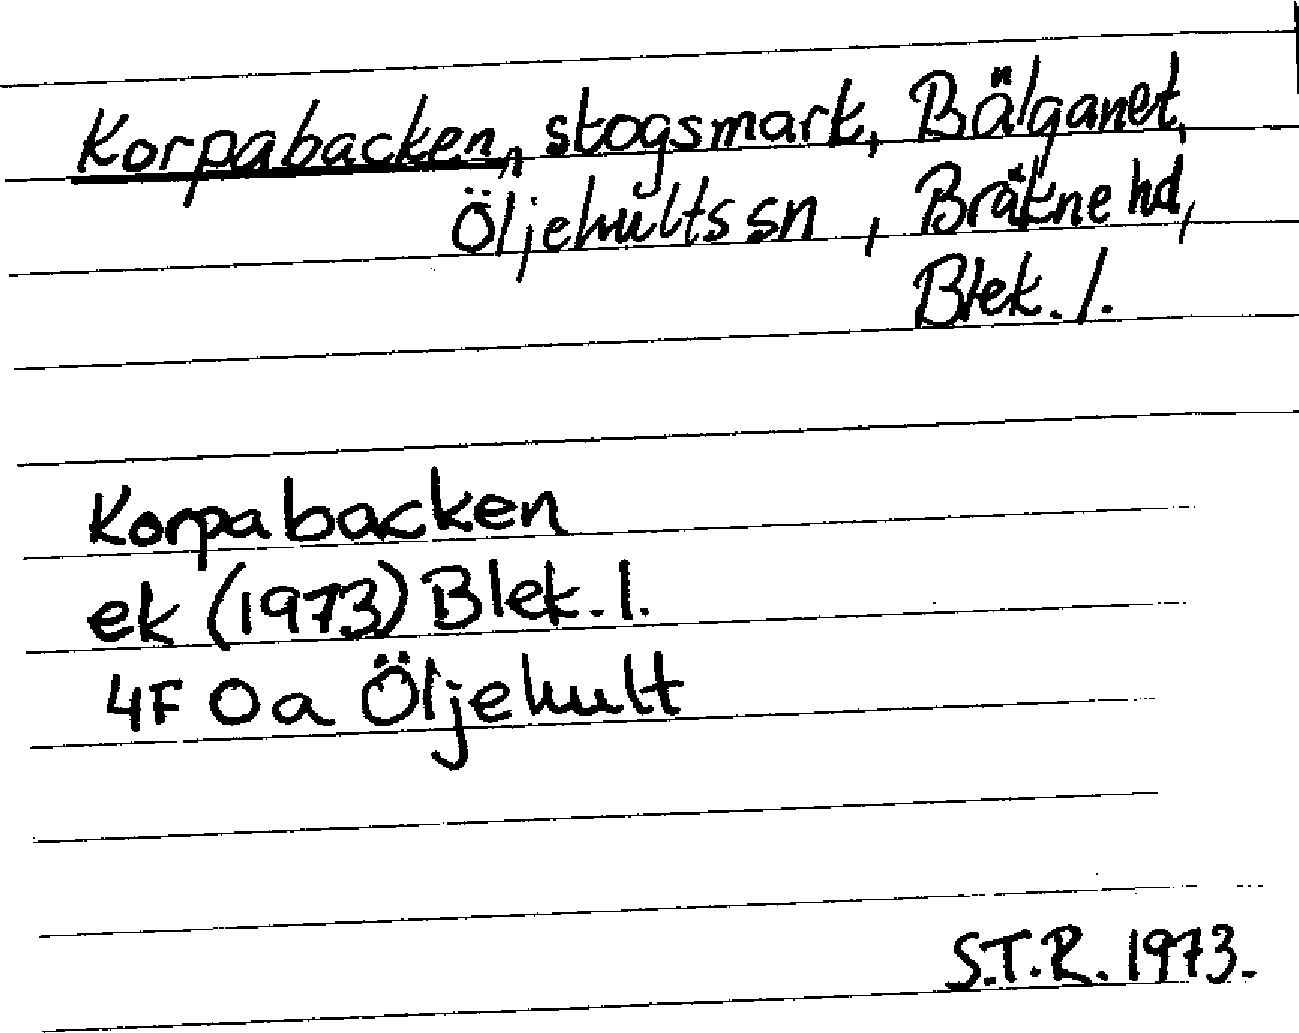 Korpabacken, skogsmark, Bälganet,
Öljehults sn, Bräkne hd,
Blek. l.
Korpabacken
ek (1973) Blek. l.
4F 0a Öljehult
S.T.R. 1973.